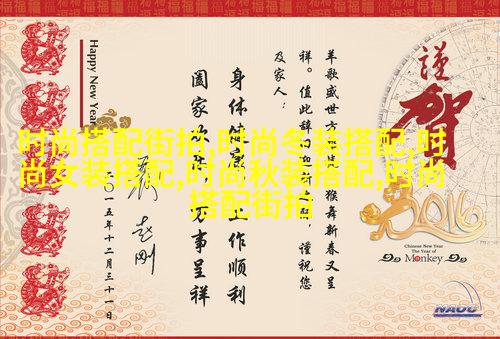 时尚搭配街拍,时尚冬装搭配,时
尚女装搭配,时尚秋装搭配,时尚
搭配街拍
謹賀
2016
Chinese New Year
The Year of
Monkey
NAOC
羊歌盛世方 猴舞新春又呈
祥。值此辞旧迎新之际，谨祝您
及家人：
身体健康 工作顺利
阖家欢乐 万事呈祥
二〇一五年十二月三十一日
Happy New Year